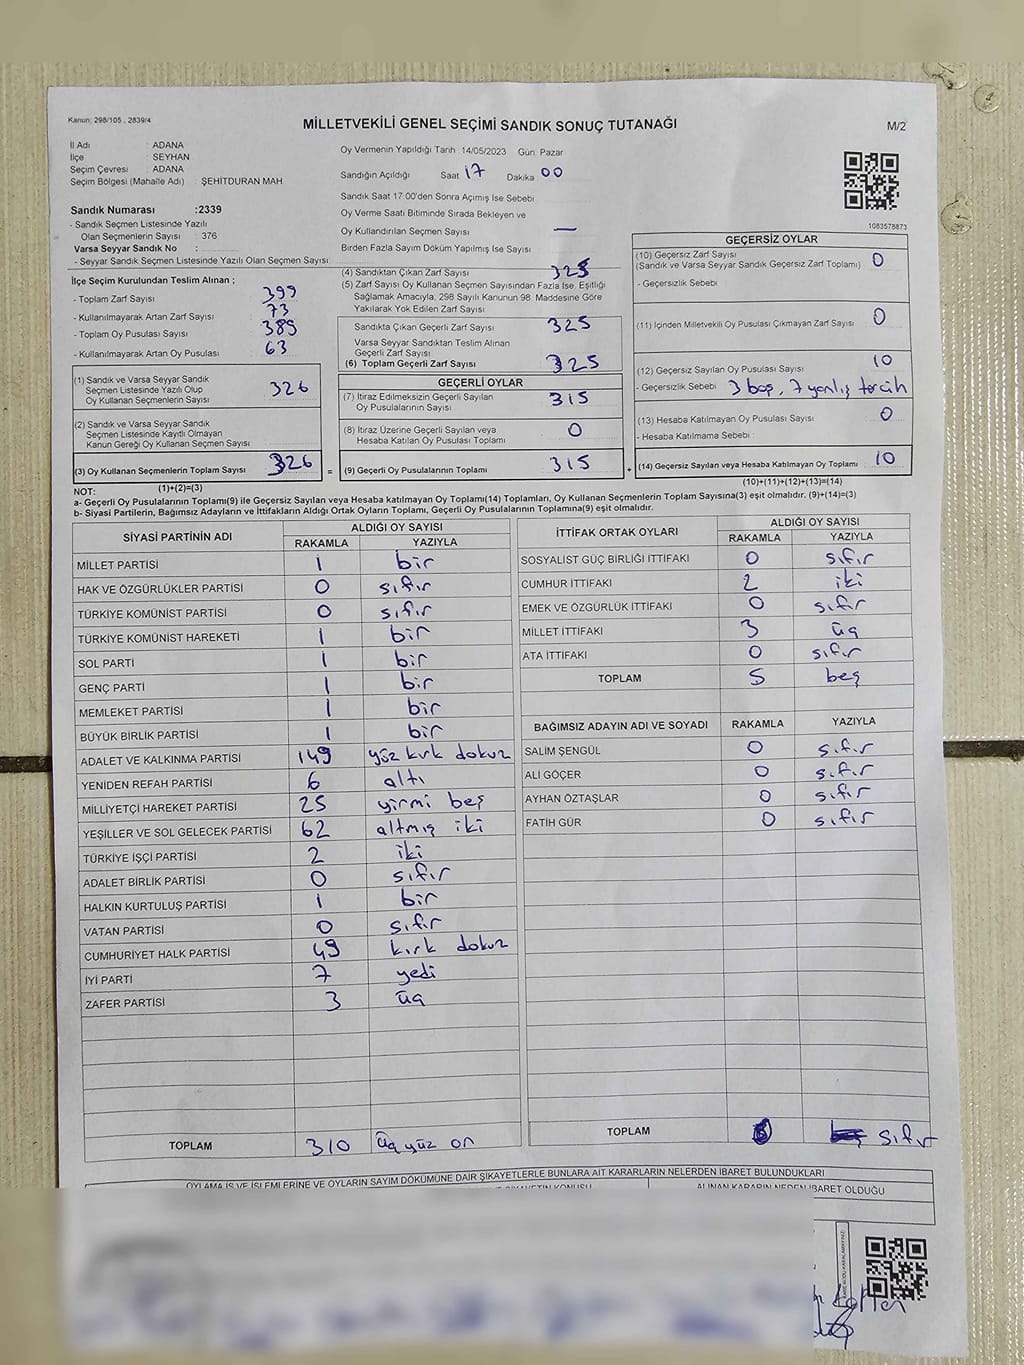 Kanun: 298/105 , 2839/4
MİLLETVEKİLİ GENEL SEÇİMİ SANDIK SONUÇ TUTANAĞI
M/2
İl Adı : ADANA
İlçe SEYHAN
Seçim Çevresi : ADANA
Seçim Bölgesi (Mahalle Adı) ŞEHİTDURAN MAH
Sandık Numarası :2339
- Sandık Seçmen Listesinde Yazılı
Olan Seçmenlerin Sayısı : 376
Varsa Seyyar Sandık No :
- Seyyar Sandık Seçmen Listesinde Yazılı Olan Seçmen Sayısı:
Oy Vermenin Yapıldığı Tarih : 14/05/2023 Gün: Pazar
Sandığın Açıldığı Saat 17 Dakika 00
Sandık Saat 17:00'den Sonra Açımış İse Sebebi
Oy Verme Saati Bitiminde Sırada Bekleyen ve
Oy Kullandırılan Seçmen Sayısı —
Birden Fazla Sayım Döküm Yapılmış İse Sayısı
1083578873
İlçe Seçim Kurulundan Teslim Alınan ;
- Toplam Zarf Sayısı 399
- Kullanılmayarak Artan Zarf Sayısı 73
- Toplam Oy Pusulası Sayısı 389
- Kullanılmayarak Artan Oy Pusulası 63
(1) Sandık ve Varsa Seyyar Sandık
Seçmen Listesinde Yazılı Olup
Oy Kullanan Seçmenlerin Sayısı 326
(2) Sandık ve Varsa Seyyar Sandık
Seçmen Listesinde Kayıtlı Olmayan
Kanun Gereği Oy Kullanan Seçmen Sayısı
(3) Oy Kullanan Seçmenlerin Toplam Sayısı 326 =
(1)+(2)=(3)
(4) Sandıktan Çıkan Zarf Sayısı 325
(5) Zarf Sayısı Oy Kullanan Seçmen Sayısından Fazla İse, Eşitliği
Sağlamak Amacıyla; 298 Sayılı Kanunun 98. Maddesine Göre
Yakılarak Yok Edilen Zarf Sayısı
Sandıkta Çıkan Geçerli Zarf Sayısı 325
Varsa Seyyar Sandıktan Teslim Alınan
Geçerli Zarf Sayısı
(6) Toplam Geçerli Zarf Sayısı 325
GEÇERLİ OYLAR
(7) İtiraz Edilmeksizin Geçerli Sayılan
Oy Pusulalarının Sayısı 315
(8) İtiraz Üzerine Geçerli Sayılan veya
Hesaba Katılan Oy Pusulası Toplamı 0
(9) Geçerli Oy Pusulalarının Toplamı 315 +
GEÇERSİZ OYLAR
(10) Geçersiz Zarf Sayısı
(Sandık ve Varsa Seyyar Sandık Geçersiz Zarf Toplamı) 0
- Geçersizlik Sebebi
(11) İçinden Milletvekili Oy Pusulası Çıkmayan Zarf Sayısı 0
(12) Geçersiz Sayılan Oy Pusulası Sayısı 10
- Geçersizlik Sebebi 3 boş, 7 yanlış tercih
(13) Hesaba Katılmayan Oy Pusulası Sayısı 0
- Hesaba Katılmama Sebebi :
(14) Geçersiz Sayılan veya Hesaba Katılmayan Oy Toplamı 10
(10)+(11)+(12)+(13)=(14)
NOT:
a- Geçerli Oy Pusulalarının Toplamı(9) ile Geçersiz Sayılan veya Hesaba katılmayan Oy Toplamı(14) Toplamları, Oy Kullanan Seçmenlerin Toplam Sayısına(3) eşit olmalıdır. (9)+(14)=(3)
b- Siyasi Partilerin, Bağımsız Adayların ve İttifakların Aldığı Ortak Oyların Toplamı, Geçerli Oy Pusulalarının Toplamına(9) eşit olmalıdır.
SİYASİ PARTİNİN ADI ALDIĞI OY SAYISI
RAKAMLA YAZIYLA
MİLLET PARTİSİ 1 bir
HAK VE ÖZGÜRLÜKLER PARTİSİ 0 sıfır
TÜRKİYE KOMÜNİST PARTİSİ 0 sıfır
TÜRKİYE KOMÜNİST HAREKETİ 1 bir
SOL PARTİ 1 bir
GENÇ PARTİ 1 bir
MEMLEKET PARTİSİ 1 bir
BÜYÜK BİRLİK PARTİSİ 1 bir
ADALET VE KALKINMA PARTİSİ 149 yüz kırk dokuz
YENİDEN REFAH PARTİSİ 6 altı
MİLLİYETÇİ HAREKET PARTİSİ 25 yirmi beş
YEŞİLLER VE SOL GELECEK PARTİSİ 62 altmış iki
TÜRKİYE İŞÇİ PARTİSİ 2 iki
ADALET BİRLİK PARTİSİ 0 sıfır
HALKIN KURTULUŞ PARTİSİ 1 bir
VATAN PARTİSİ 0 sıfır
CUMHURİYET HALK PARTİSİ 49 kırk dokuz
İYİ PARTİ 7 yedi
ZAFER PARTİSİ 3 üç
TOPLAM 310 üç yüz on
İTTİFAK ORTAK OYLARI ALDIĞI OY SAYISI
RAKAMLA YAZIYLA
SOSYALİST GÜÇ BİRLİĞİ İTTİFAKI 0 sıfır
CUMHUR İTTİFAKI 2 iki
EMEK VE ÖZGÜRLÜK İTTİFAKI 0 sıfır
MİLLET İTTİFAKI 3 üç
ATA İTTİFAKI 0 sıfır
TOPLAM 5 beş
BAĞIMSIZ ADAYIN ADI VE SOYADI RAKAMLA YAZIYLA
SALİM ŞENGÜL 0 sıfır
ALİ GÖÇER 0 sıfır
AYHAN ÖZTAŞLAR 0 sıfır
FATİH GÜR 0 sıfır
TOPLAM sıfır
OYLAMA İŞ VE İŞLEMLERİNE VE OYLARIN SAYIM DÖKÜMÜNE DAİR ŞİKAYETLERLE BUNLARA AİT KARARLARIN NELERDEN İBARET BULUNDUKLARI
ALINAN KARARIN NEDEN İBARET OLDUĞU